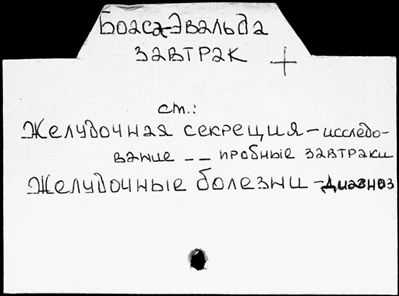 Боаса-Эвальда
завтрак
см.:
Желудочная секреция – исследо-
вание -- пробные завтраки
Желудочные болезни – диагноз